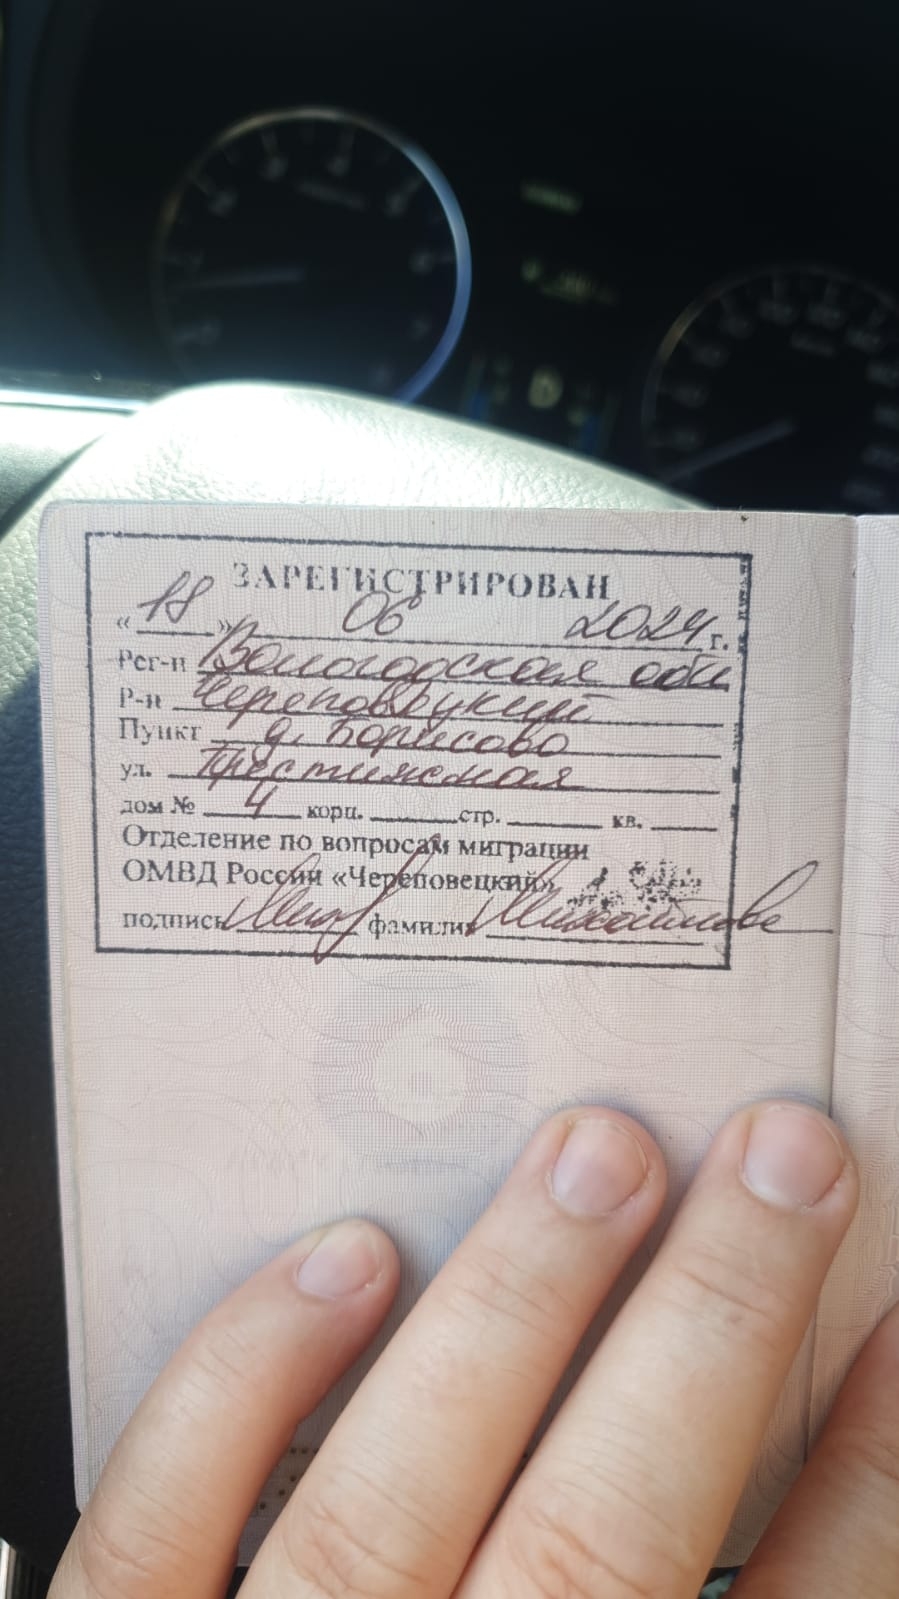 ЗАРЕГИСТРИРОВАН
«18» 06 2024 г.
Рег-н Вологодская обл
Р-н Череповецкий
Пункт д. Борисово
ул. Престижная
дом № 4 корп. стр. кв.
Отделение по вопросам миграции
ОМВД России «Череповецкий»
подпись фамилия Михайлова